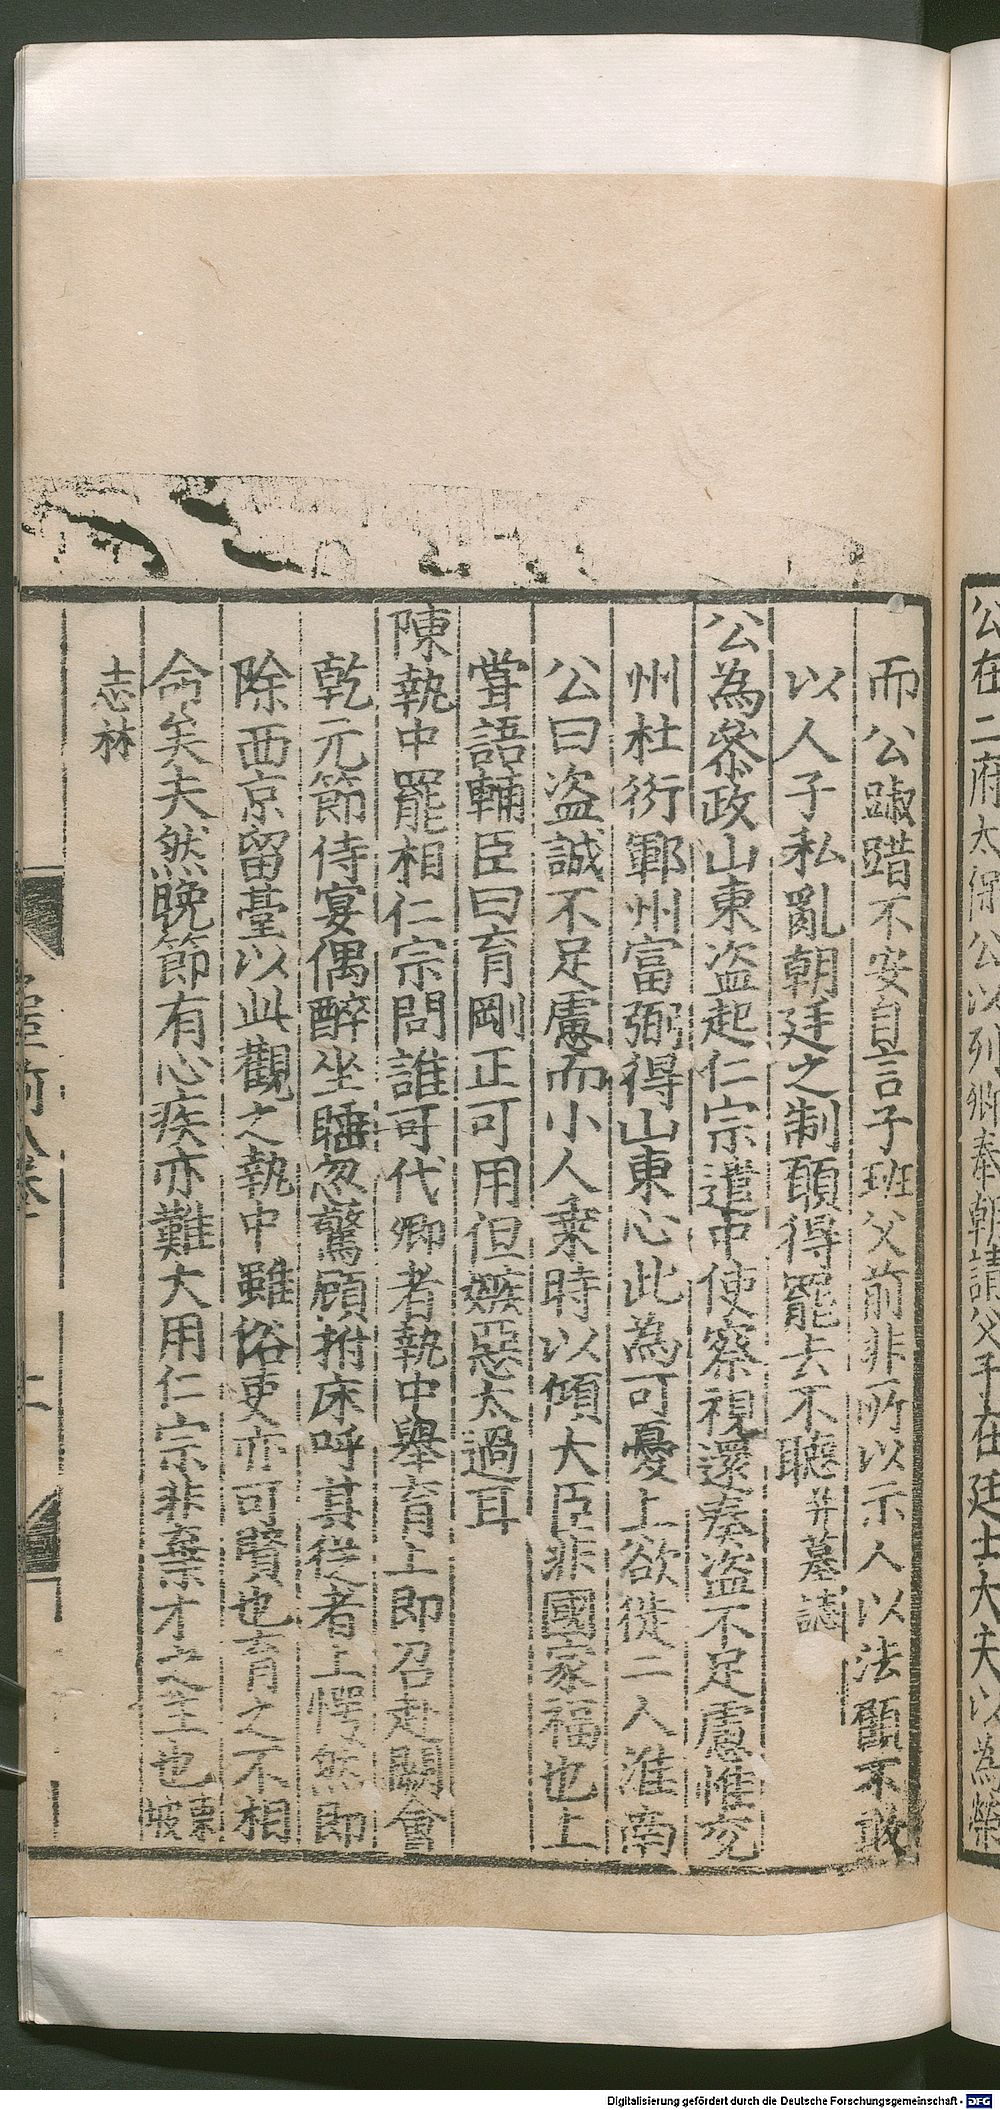 公在二府太保公以列卿奉朝請父子在廷士大夫以為榮
而公踧踖不安自言子班父前非所以示人以法顧不敢
以人子私亂朝廷之制願得罷去不聽并墓誌
公為叅政山東盗起仁宗遣中使察視還奏盗不足慮惟兖
州杜衍鄆州富弼得山東心此為可憂上欲徙二人淮南
公曰盗誠不足慮而小人乗時以傾大臣非國家福也上
甞語輔臣曰育剛正可用但嫉惡太過耳
陳執中罷相仁宗問誰可代卿者執中舉育上即召赴闕會
乾元節侍宴偶醉坐睡忽驚顧拊床呼其從者上愕然即
除西京留臺以此觀之執中雖俗吏亦可賢也育之不相
命矣夫然晚節有心疾亦難大用仁宗非棄才之主也東坡
志林
Digitalisierung gefördert durch die Deutsche Forschungsgemeinschaft - DFG